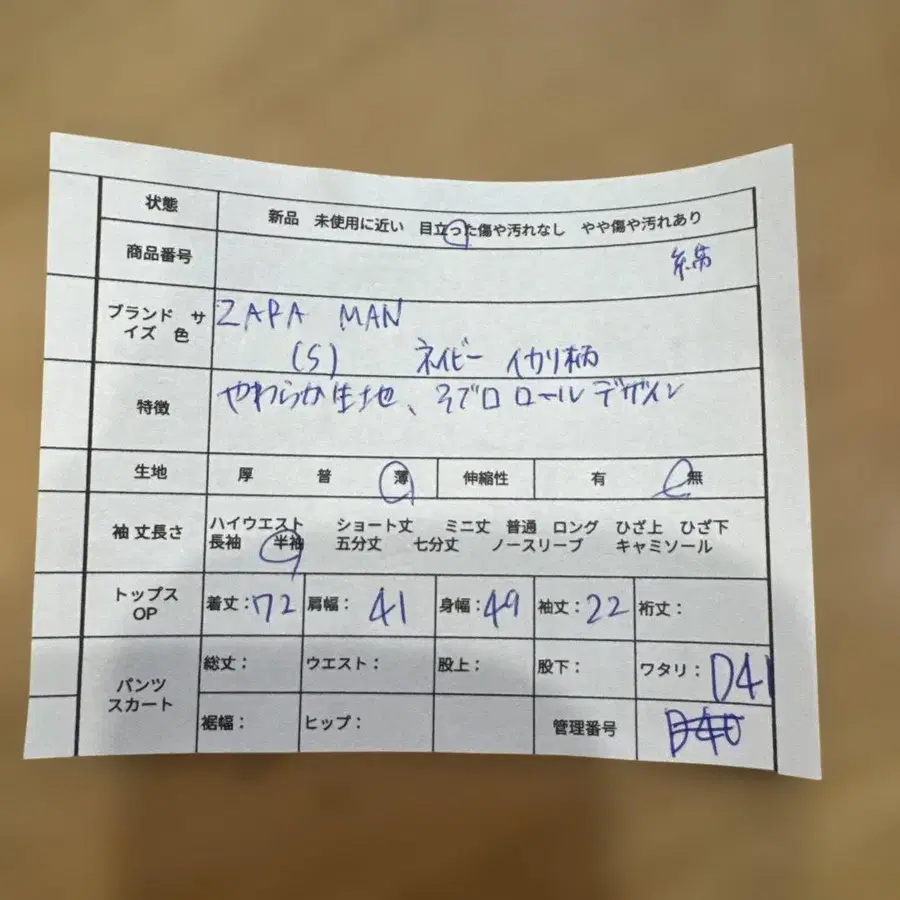 状態 新品 未使用に近い 目立った傷や汚れなし やや傷や汚れあり
商品番号 綿
ブランド サイズ 色 ZAPA MAN
(S) ネイビー イカリ柄
特徴 やわらか生地、そで口ロールデザイン
生地 厚 普 薄 伸縮性 有 無
袖 丈長さ ハイウエスト ショート丈 ミニ丈 普通 ロング ひざ上 ひざ下
長袖 半袖 五分丈 七分丈 ノースリーブ キャミソール
トップス OP 着丈:72 肩幅: 41 身幅:49 袖丈:22 裄丈:
パンツ スカート 総丈: ウエスト: 股上: 股下: ワタリ: D41
裾幅: ヒップ: 管理番号 D40